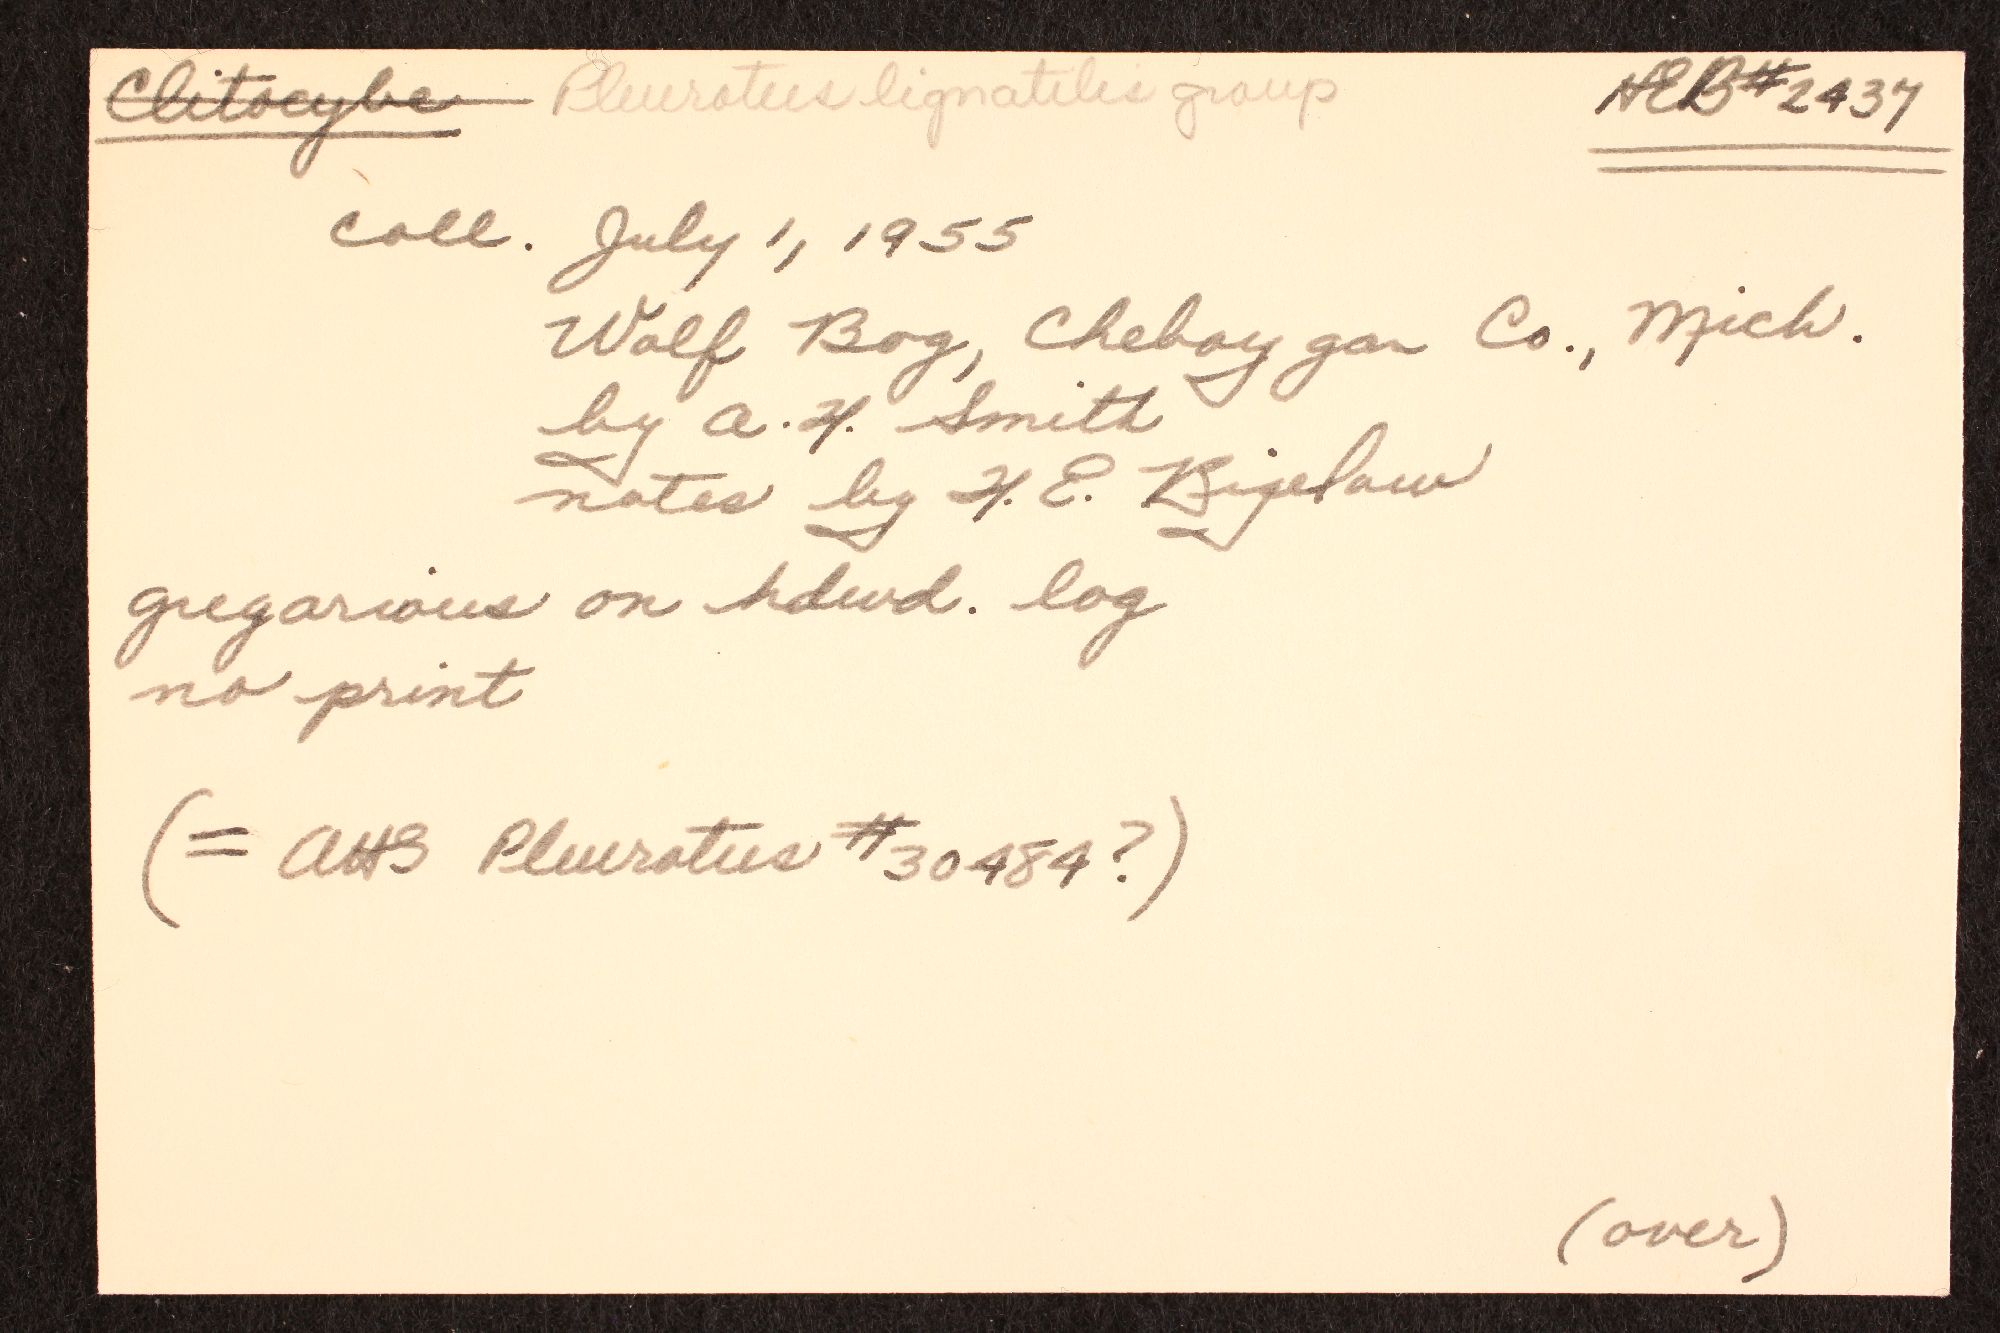 Clitocybe Pleurotus lignatilis group HEB #2437
coll. July 1, 1955
Wolf Bog, Cheboygan Co., Mich.
by A. H. Smith
notes by H. E. Bigelow
gregarious on hdwd. log
no print
(= AHS Pleurotus #30484?)
(over)